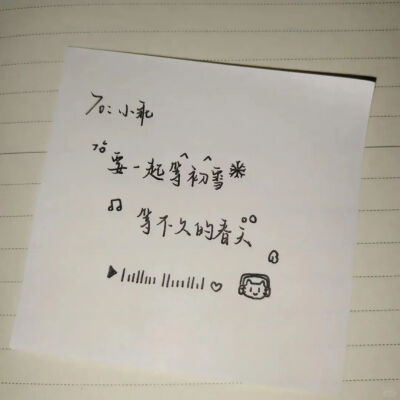 To: 小乖
要一起等初雪
等不久的春天